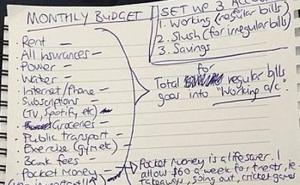 MONTHLY BUDGET
Rent -
All Insurances -
Power -
Water -
Internet/Phone -
Subscriptions -
(TV, Spotify, etc)
Groceries -
Public transport -
Exercise (Gym etc) -
Bank Fees -
Pocket Money -
SET UP 3
1. Working (regular bills)
2. Slush (for irregular bills)
3. Savings
for
Total regular bills
goes into "Working a/c".
Pocket Money is a life saver. I
allow $60 a week for treats, ie
takeaway, going out, cricket games